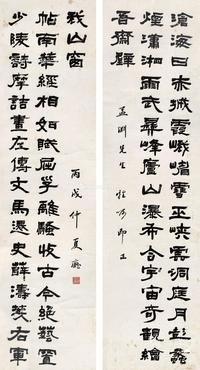 滄海日赤城霞峨嵋雪巫峽雲洞庭月彭蠡
煙瀟湘雨武夷峰廬山瀑布合宇宙奇觀繪
吾齋壁
孟淵先生
即正
少陵詩摩詰畫左傳文馬遷史薛濤箋右軍
帖南華經相如賦屈子離騷收古今絕藝置
我山窗
丙戌仲夏